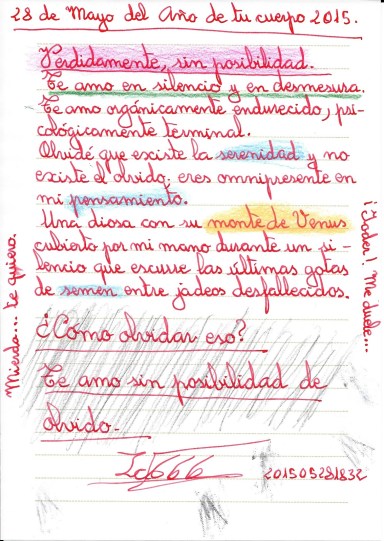 28 de Mayo del Año de tu cuerpo 2015.
Perdidamente, sin posibilidad.
Te amo en silencio y en desmesura.
Te amo orgánicamente endurecido, psi-
cológicamente terminal.
Olvidé que existe la serenidad y no
existe el olvido; eres omnipresente en
mi pensamiento.
Una diosa con su monte de Venus
cubierto por mi mano durante un si-
lencio que escurre las últimas gotas
de semen entre jadeos desfallecidos.
¿Cómo olvidar eso?
Te amo sin posibilidad de
olvido.
Ic666
201505281832
Mierda... te quiero.
¡Joder! Me duele...